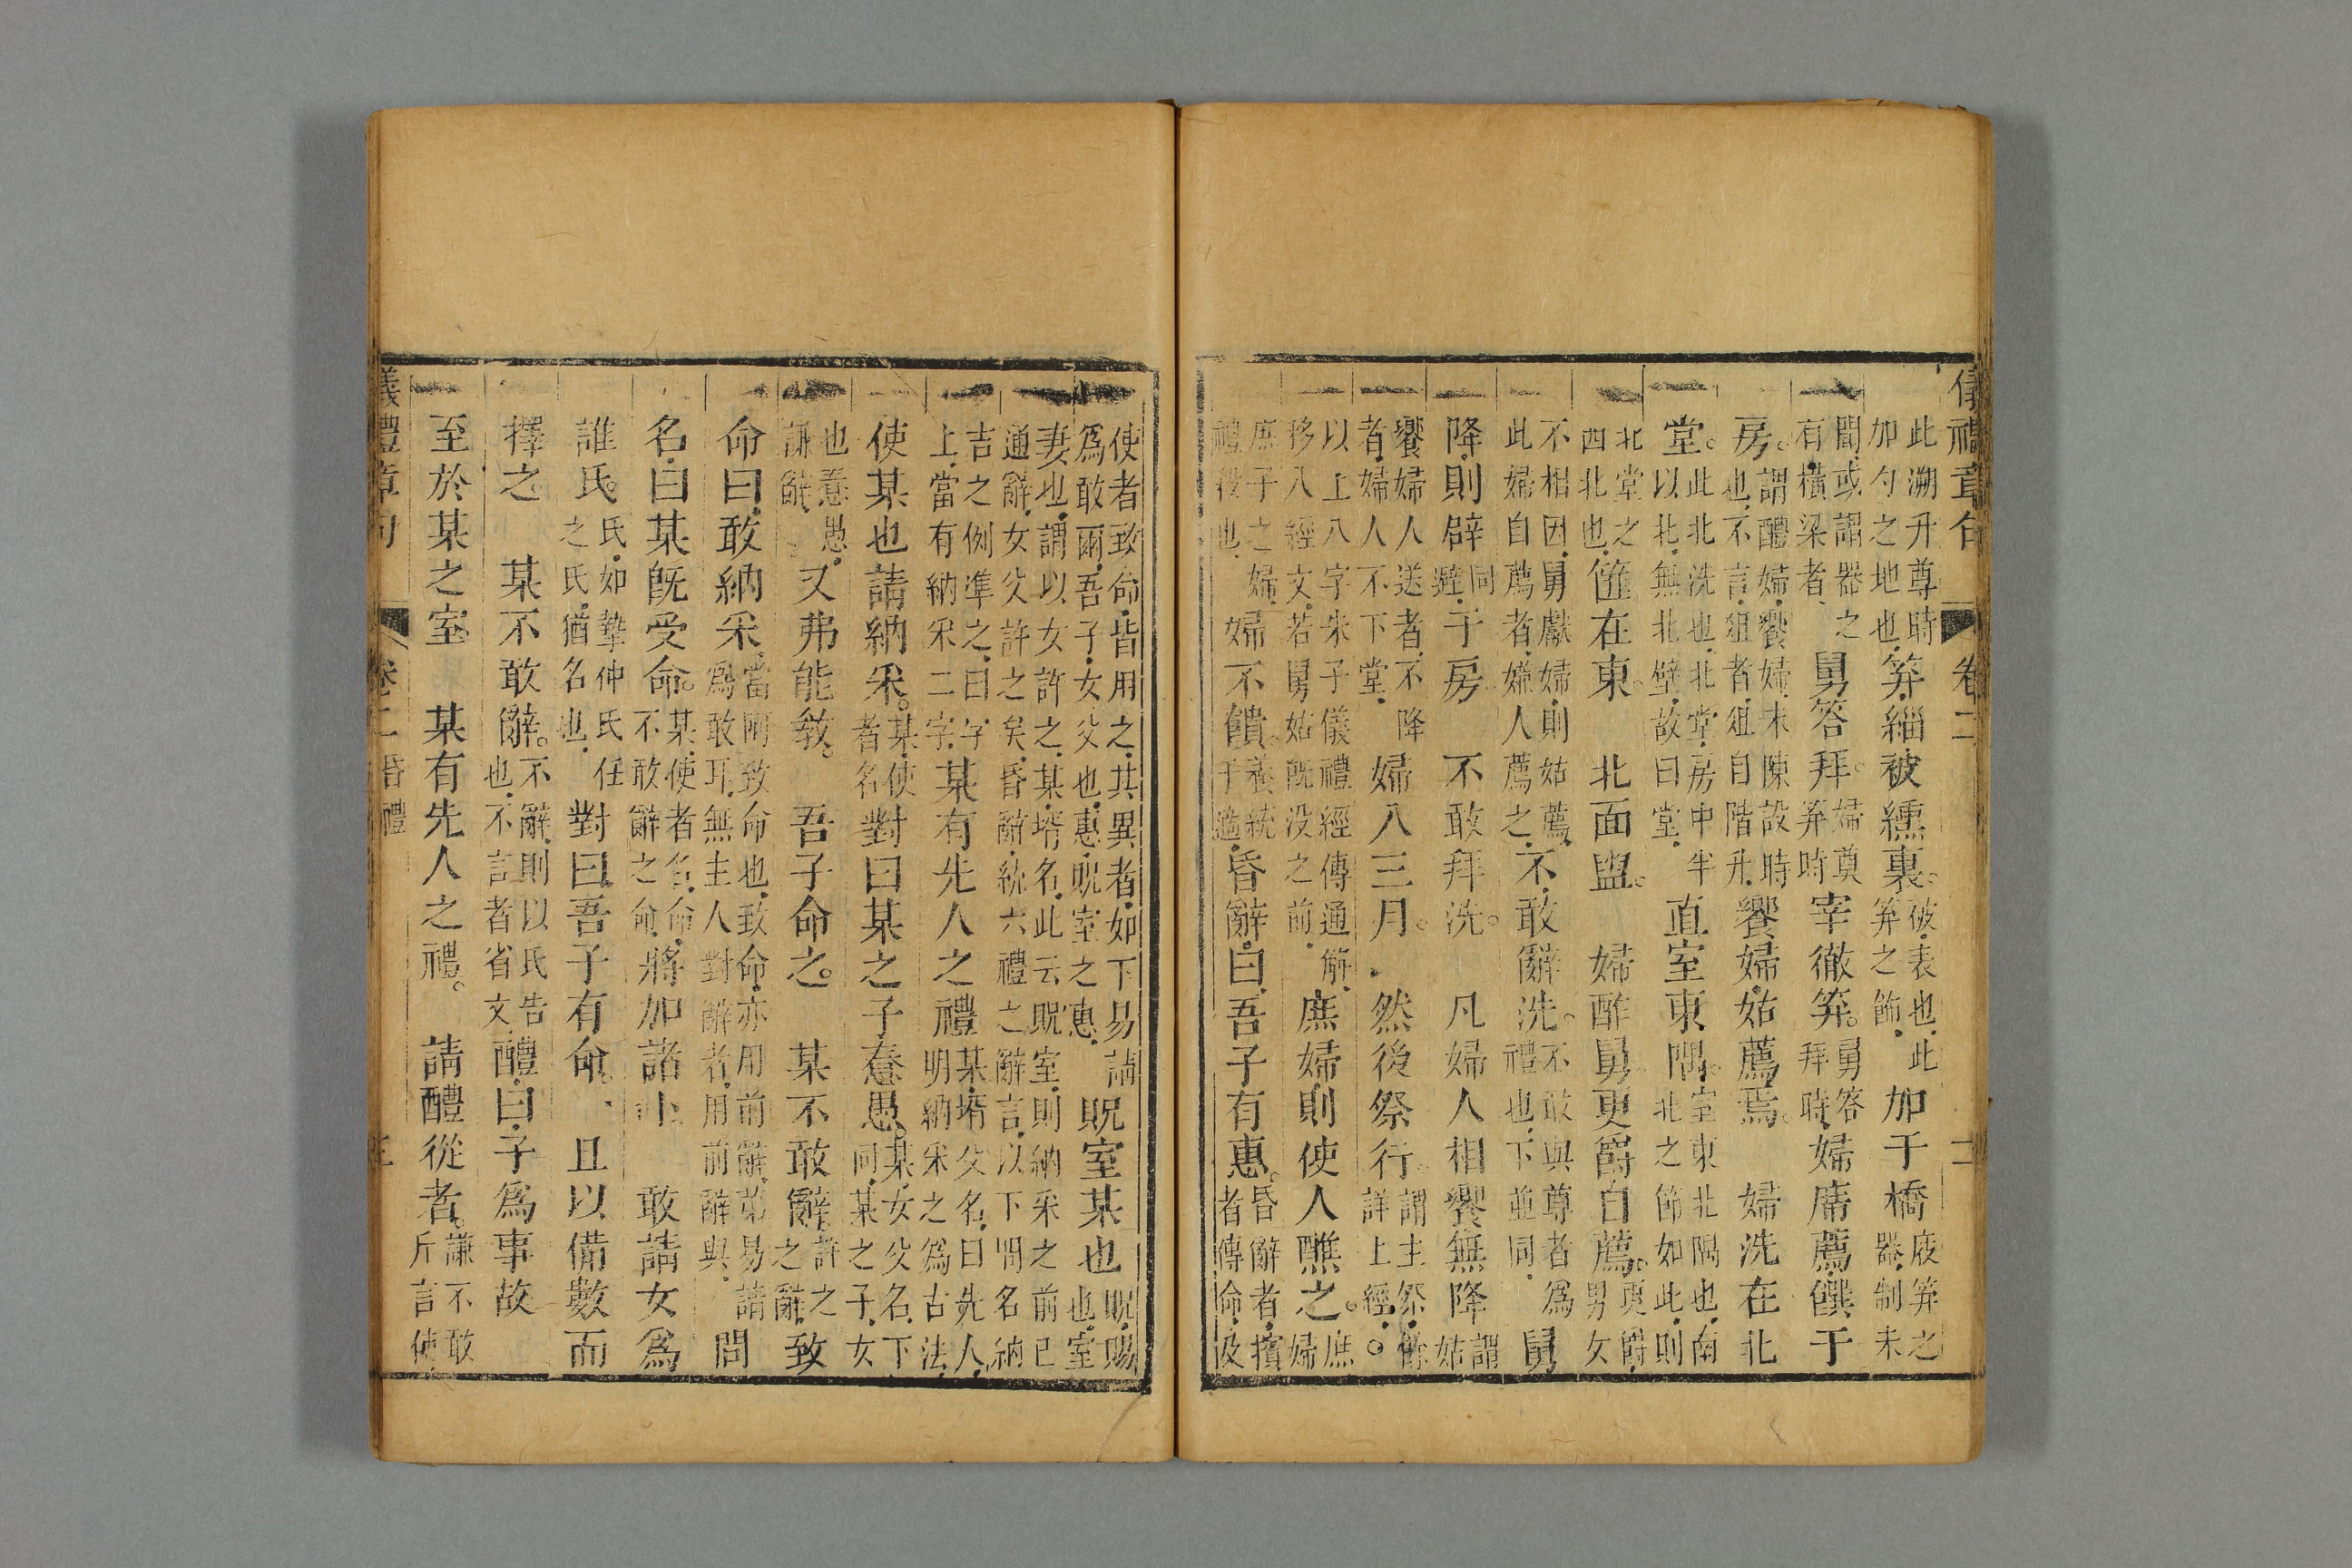 儀禮章句 卷二
此溯升尊時加勺之地也笲緇被纁裏。被表也此笲之飾加于橋庋笲之器制未
聞或謂器之有橫梁者舅答拜。婦奠笲時宰徹笲。舅答拜時婦席薦饌于
房。謂醴婦饗婦未陳設時也不言俎者俎自階升饗婦姑薦焉。婦洗在北
堂。此北洗也北堂房中半以北無北壁故曰堂直室東隅。室東北隅也南北之節如此則
北堂之西北也篚在東。北面盥。婦酢舅更爵自薦。更爵男女
不相因舅獻婦則姑薦此婦自薦者嫌人薦之不敢辭洗。不敢與尊者爲禮也下並同舅
降則辟同避于房。不敢拜洗。凡婦人相饗無降謂姑
饗婦人送者不降者婦人不下堂婦入三月。然後祭行。謂主祭餘詳上經○
以上八字朱子儀禮經傳通解移入經文若舅姑既没之前庶婦則使人醮之。庶婦
庶子之婦禮殺也婦不饋。養統于適昏辭曰吾子有惠。昏辭者擯者傳命及
使者致命皆用之其異者如下易請爲敢爾吾子女父也惠貺室之惠貺室某也貺賜也室
妻也謂以女許之某壻名此云貺室則納采之前已通辭女父許之矣昏辭統六禮之辭言以下問名納
吉之例準之曰字上當有納采二字某有先人之禮某壻父名曰先人明納采之爲古法
使某也請納采。某使者名對曰某之子惷愚。某女父名下同某之子女
也惷愚謙辭又弗能敎。吾子命之。某不敢辭。許之之辭致
命曰敢納采。當阿致命也致命亦用前辭第易請爲敢耳無主人對辭者用前辭與問
名曰某既受命。某使者名命不敢辭之命將加諸卜敢請女爲
誰氏。氏如摯仲氏任之氏猶名也對曰吾子有命。且以備數而
擇之。某不敢辭。不辭則以氏告也不言者省文醴曰子爲事故
至於某之室。某有先人之禮。請醴從者。謙不敢斥言使
儀禮章句 卷二 昏禮